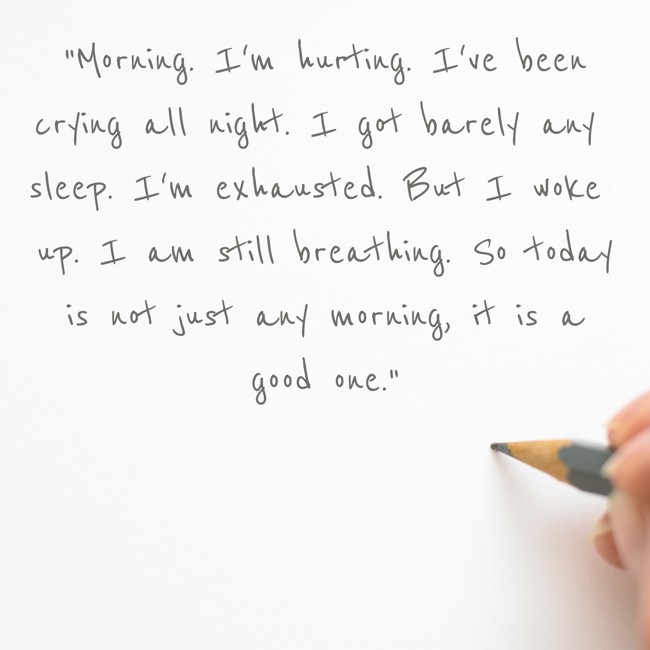 "Morning. I'm hurting. I've been
crying all night. I got barely any
sleep. I'm exhausted. But I woke
up. I am still breathing. So today
is not just any morning, it is a
good one."